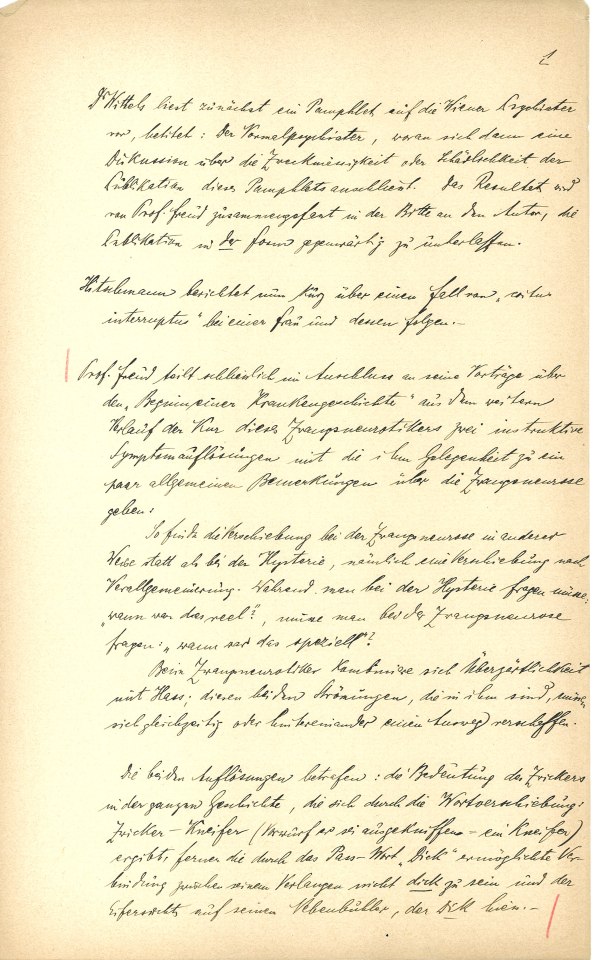 1
Dr Wittels liest zunächst ein Pamphlet auf die Wiener Psychiater
vor, betitelt: Der Normalpsychiater, woran sich dann eine
Diskussion über die Zweckmässigkeit oder Schädlichkeit der
Publikation dieses Pamphlets anschliesst. Das Resultat wird
von Prof. Freud zusammengefasst in der Bitte an den Autor, die
Publikation in der Form gegenwärtig zu unterlassen.
Hitschmann berichtet nun kurz über einen Fall von „coitus
interruptus“ bei einer Frau und dessen Folgen.—
Prof. Freud teilt schliesslich im Anschluss an seine Vorträge über
den „Beginn einer Krankengeschichte“ aus dem weitern
Verlauf der Kur dieses Zwangsneurotikers zwei instruktive
Symptomauflösungen mit die ihm Gelegenheit zu ein
paar allgemeinen Bemerkungen über die Zwangsneurose
geben:
So finde die Verschiebung bei der Zwangsneurose in anderer
Weise statt als bei der Hysterie, nämlich eine Verschiebung nach
Verallgemeinerung. Während man bei der Hysterie fragen müsse:
„wann war das reel?, müsse man bei der Zwangsneurose
fragen: „wann war das speziell“?
Beim Zwangsneurotiker kombiniere sich Überzärtlichkeit
mit Hass; diesen beiden Strömungen, die in ihm sind, müsse
sich gleichzeitig oder hintereinander einen Ausweg verschaffen.
Die beiden Auflösungen betrafen: die Bedeutung des Zwickers
in der ganzen Geschichte, die sich durch die Wortverschiebung:
Zwicker – Kneifer (Vorwurf er sei ausgekniffen – ein Kneifer)
ergibt; ferner die durch das Pass-Wort „Dick“ ermöglichte Ver-
bindung zwischen seinem Verlangen nicht dick zu sein und der
Eifersucht auf seinen Nebenbuhler, der Dick hiess.—